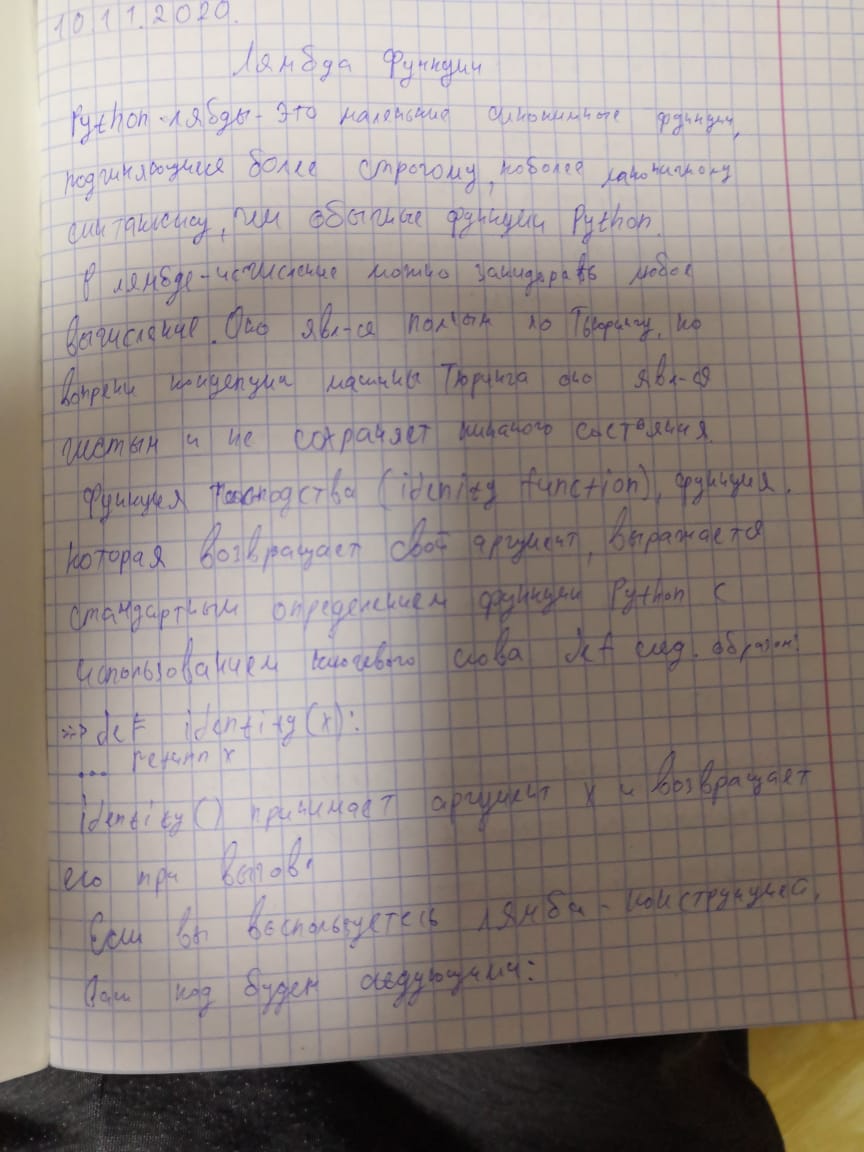 10.11.2020.
Лямбда Функции
Python-лябды - это маленькие анонимные функции,
подчиняющиеся более строгому, но более лаконичному
синтаксису, чем обычные функции Python.
В лямбде-исчисление можно закодировать любое
вычисление. Оно явл-ся полным по Тьюрингу, но
вопреки концепции машины Тюринга оно явл-ся
чистым и не сохраняет никакого состояния.
Функция (identity function), функция,
которая возвращает свой аргумент, выражается
стандартным определением функции Python с
использованием ключевого слова def след. образом:
>>> def identity(x):
... return x
identity() принимает аргумент x и возвращает
его при вызов.
Если вы воспользуетесь лямба-конструкцией,
Ваш код будет следующим: